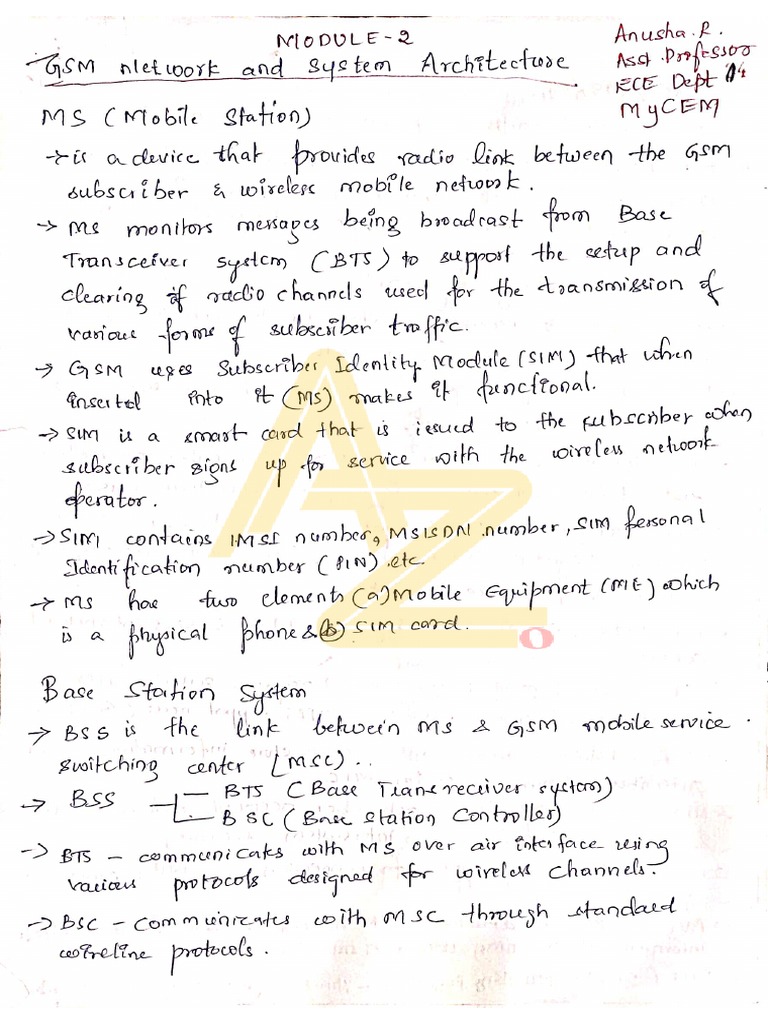 MODULE-2
GSM Network and System Architecture
Anusha.R.
Asst.Professor
ECE Dept
MyCEM
MS (Mobile Station)
→ is a device that provides radio link between the GSM
subscriber & wireless mobile network.
→ MS monitors messages being broadcast from Base
Transceiver system (BTS) to support the setup and
clearing of radio channels used for the transmission of
various forms of subscriber traffic.
→ GSM uses Subscriber Identity Module (SIM) that when
inserted into it (MS) makes it functional.
→ SIM is a smart card that is issued to the subscriber when
subscriber signs up for service with the wireless network
operator.
→ SIM contains IMSI number, MSISDN number, SIM Personal
Identification number (PIN) etc.
→ MS has two elements (a) Mobile Equipment (ME) which
is a physical phone & (b) SIM card.
Base Station System
→ BSS is the link between MS & GSM mobile service
switching center [MSC)..
→ BSS — BTS (Base Transreceiver system)
— BSC (Base Station Controller)
→ BTS – communicates with MS over air interface using
various protocols designed for wireless channels.
→ BSC – communicates with MSC through standard
wireline protocols.